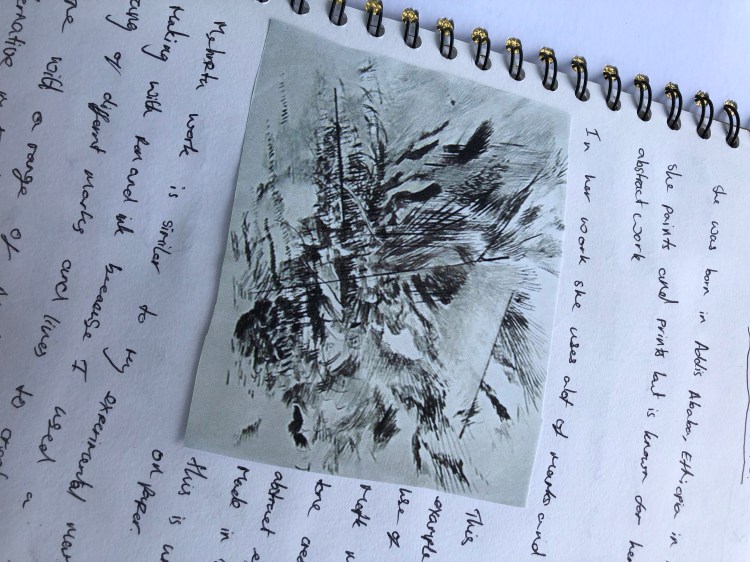 She was born in Addis Ababa, Ethiopia in
She paints and prints but is known for her
abstract work
In her work she uses alot of marks and
This
example
use of
Mark
tone
abstract
Made in
this is
on paper.
work is similer to My experimental
Making with Pen and ink because I used
of differnt marks and lines to creat a
with a range of